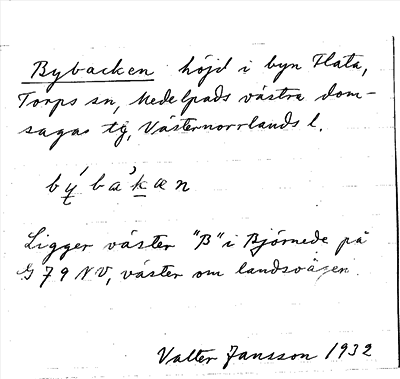 Bybacken höjd i byn Flata,
Torps sn, Medelpads västra dom-
sagas tg, Västernorrlands l.
bý̨bàkan
Ligger väster "B" i Björnede på
G 79 NV, väster om landsvägen.
Valter Jansson 1932